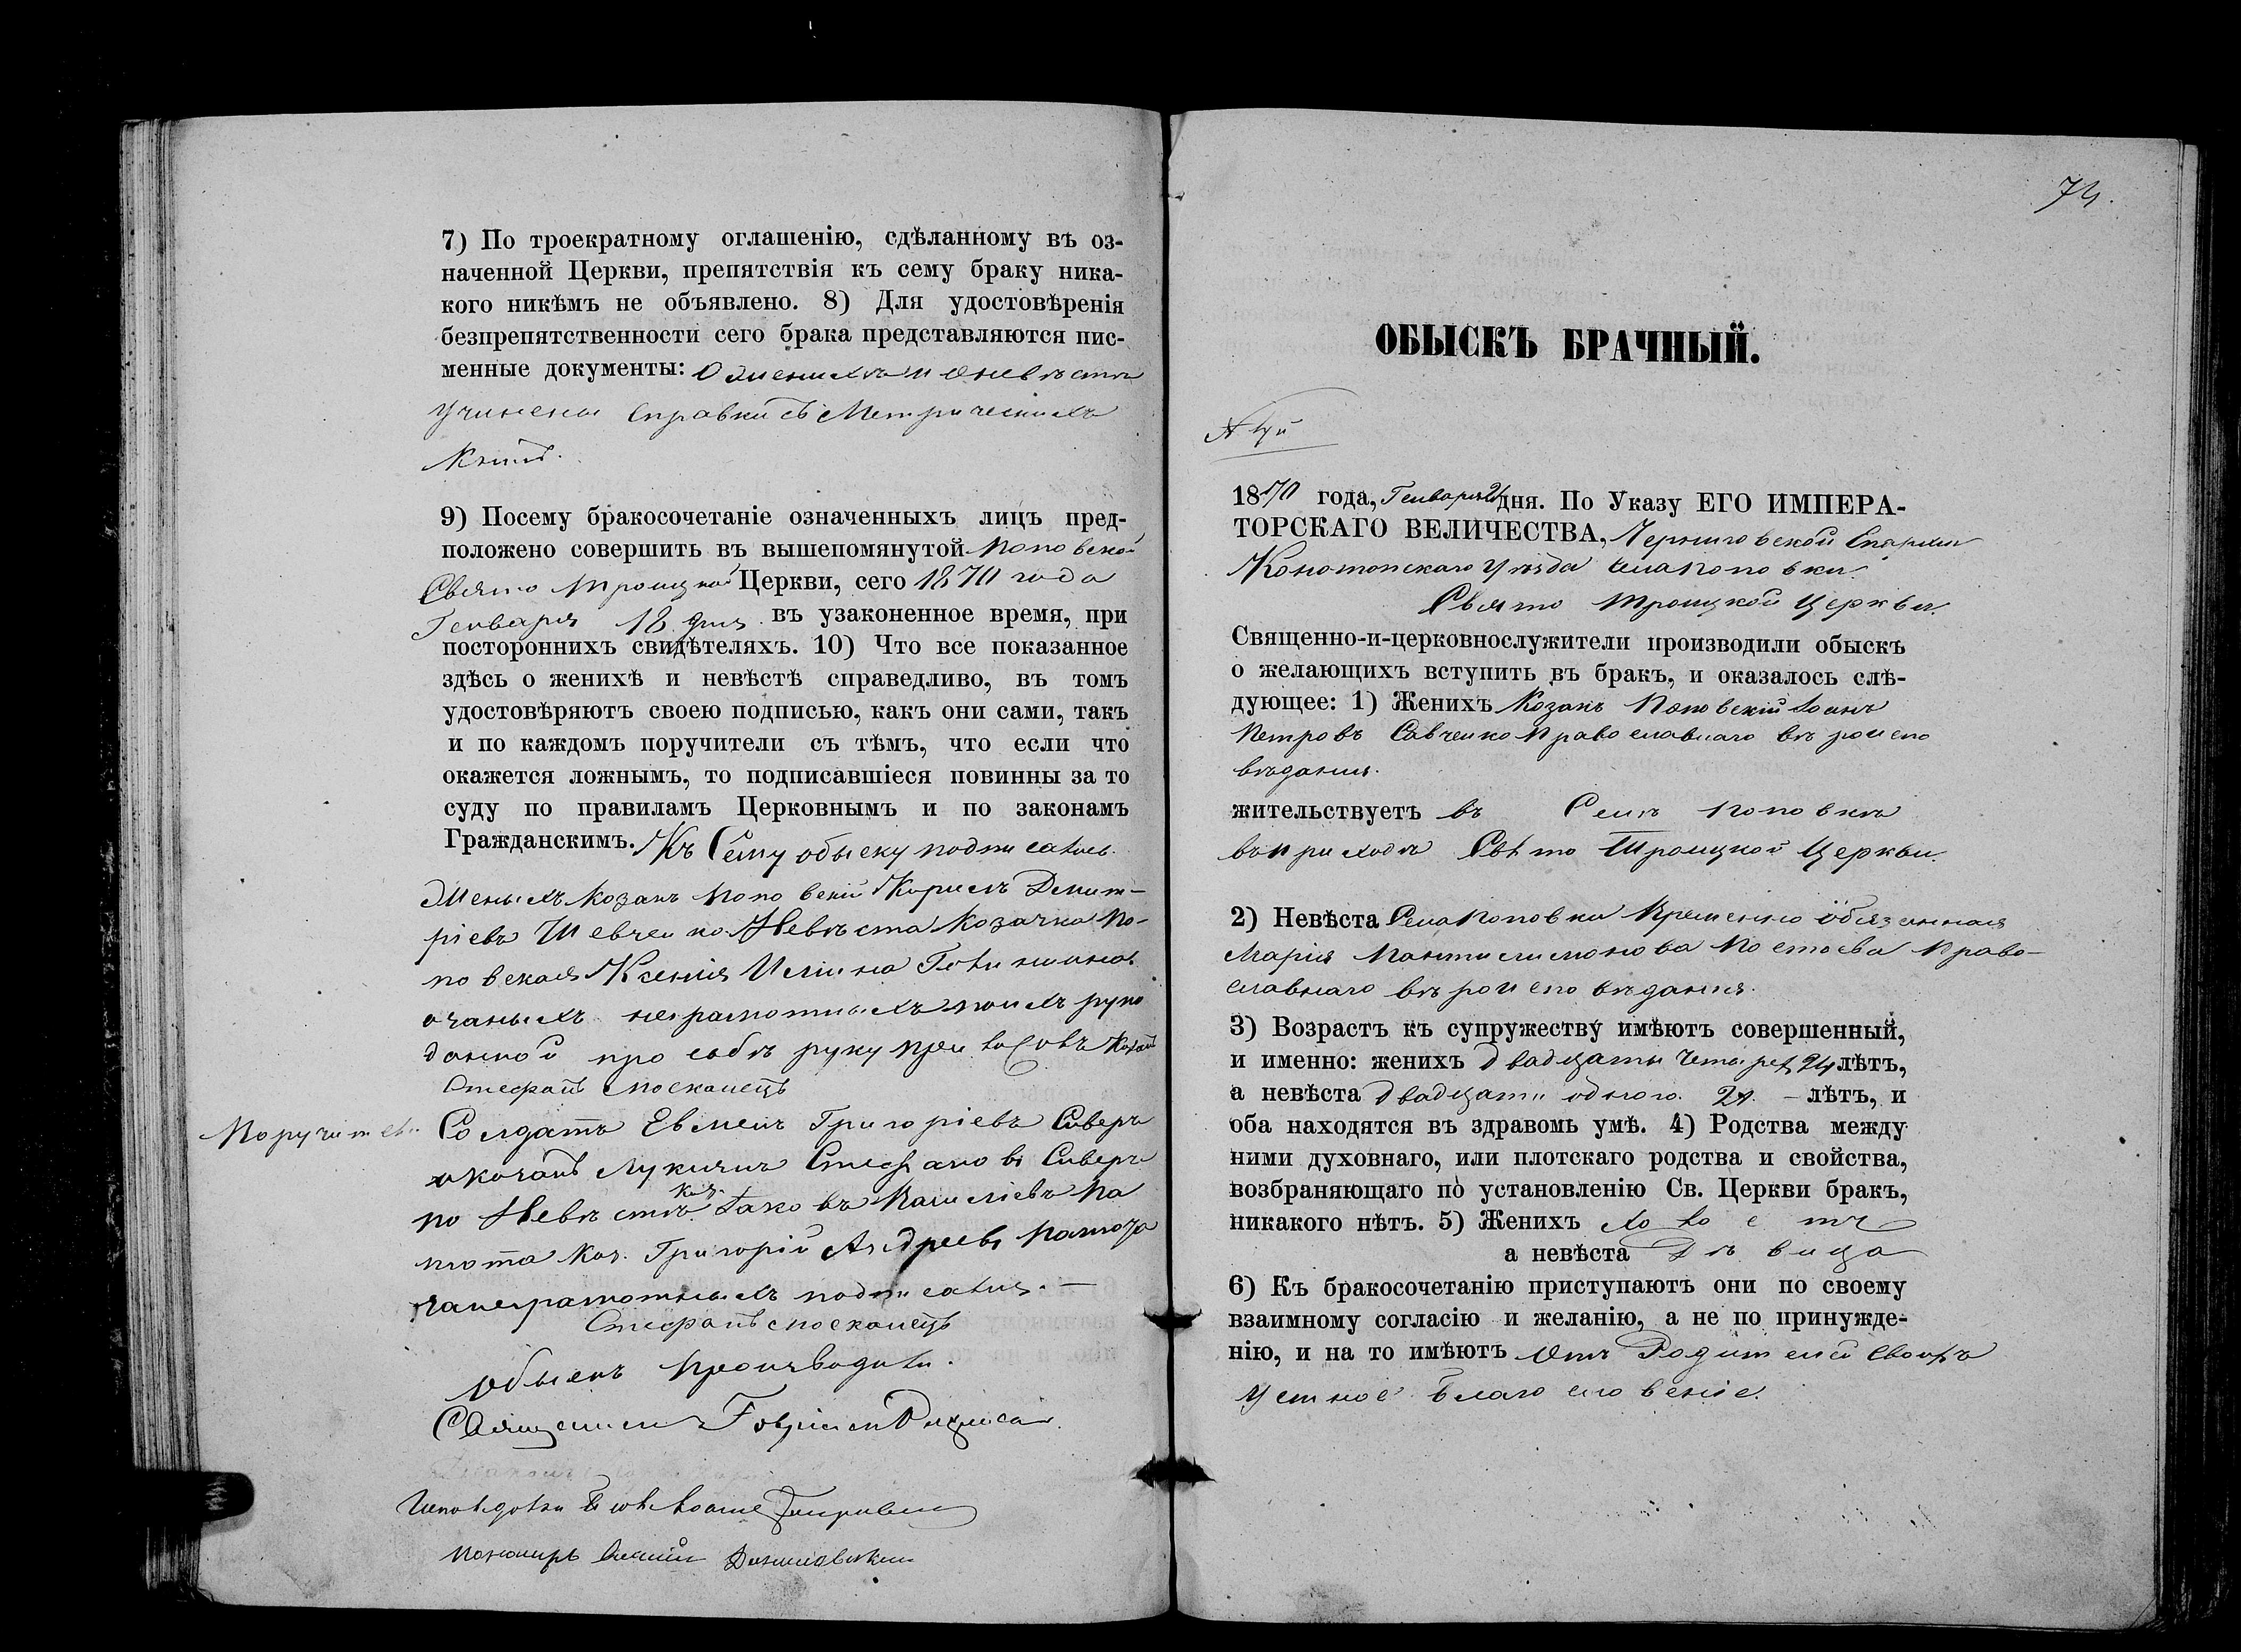 7) По троекратному оглашенію, сдѣланному въ оз-
наченной Церкви, препятствія къ сему браку ника-
кого никѣмъ не объявлено. 8) Для удостовѣренія
безпрепятственности сего брака представляются пис-
менные документы: О женихѣ и о невѣстѣ
учинены справки съ Метрическихъ
книгъ.
9) Посему бракосочетаніе означенныхъ лицъ пред-
положено совершить въ вышепомянутой Поповской
Свято Троицкой Церкви, сего 1870 года
Генваря 18 дня въ узаконенное время, при
постороннихъ свидѣтеляхъ. 10) Что все показанное
здѣсь о женихѣ и невѣстѣ справедливо, въ томъ
удостовѣряютъ своею подписью, какъ они сами, такъ
и по каждомъ поручители съ тѣмъ, что если что
окажется ложнымъ, то подписавшіеся повинны за то
суду по правиламъ Церковнымъ и по законамъ
Гражданскимъ. Къ Сему обыску подписались
Женыхъ козакъ Поповскій Кирилъ Димит-
ріевъ Шевченко Невѣста Козачка По-
повская Ксенія
неграмотныхъ
данной про сьбѣ руку
Стефанъ Москалецъ
Поручители Солдатъ Евмень Григоріевъ Сиверъ
Стефановъ Сиверъ
по Невѣстѣ каз. Іаковъ Василіевъ
Каз. Григорій Андреевъ
неграмотныхъ подписался. —
Стефанъ Москалецъ
Обыскъ производили.
Священникъ Гавріилъ
Пономарь
74.
ОБЫСКЪ БРАЧНЫЙ.
1870 года, Генваря 21 дня. По Указу ЕГО ИМПЕРА-
ТОРСКАГО ВЕЛИЧЕСТВА, Черниговской Епархіи
Конотопскаго Уѣзда села Поповки
Свято Троицкой Церкви.
Священно-и-церковнослужители производили обыскъ
о желающихъ вступить въ бракъ, и оказалось слѣ-
дующее: 1) Женихъ Козакъ Поповскій Іоанъ
Петровъ Савченко Православнаго вѣроиспо
вѣданія.
жительствуетъ въ Селѣ Поповкѣ
въ приходѣ Свято Троицкой Церкви.
2) Невѣста Села Поповки Временно обязанная
Марія Пантилимонова Постоева Право-
славнаго вѣроисповѣданія.
3) Возрастъ къ супружеству имѣютъ совершенный,
и именно: женихъ двадцати четырех 24 лѣтъ,
а невѣста двадцати одного. 21. – лѣтъ, и
оба находятся въ здравомь умѣ. 4) Родства между
ними духовнаго, или плотскаго родства и свойства,
возбраняющаго по установленію Св. Церкви бракъ,
никакого нѣтъ. 5) Женихъ холостъ
а невѣста Дѣвица
6) Къ бракосочетанію приступаютъ они по своему
взаимному согласію и желанію, а не по принужде-
нію, и на то имѣютъ Отъ Родителей своихъ
Устное благословеніе.